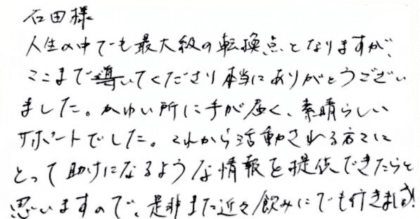 石田様
人生の中でも最大級の転換点となりますが、
ここまで導いてくださり本当にありがとうござい
ました。かゆい所に手が届く、素晴らしい
サポートでした。これから活動される方々に
とって助けになるような情報を提供できたらと
思いますので、是非また近々飲みにでも行きましょう